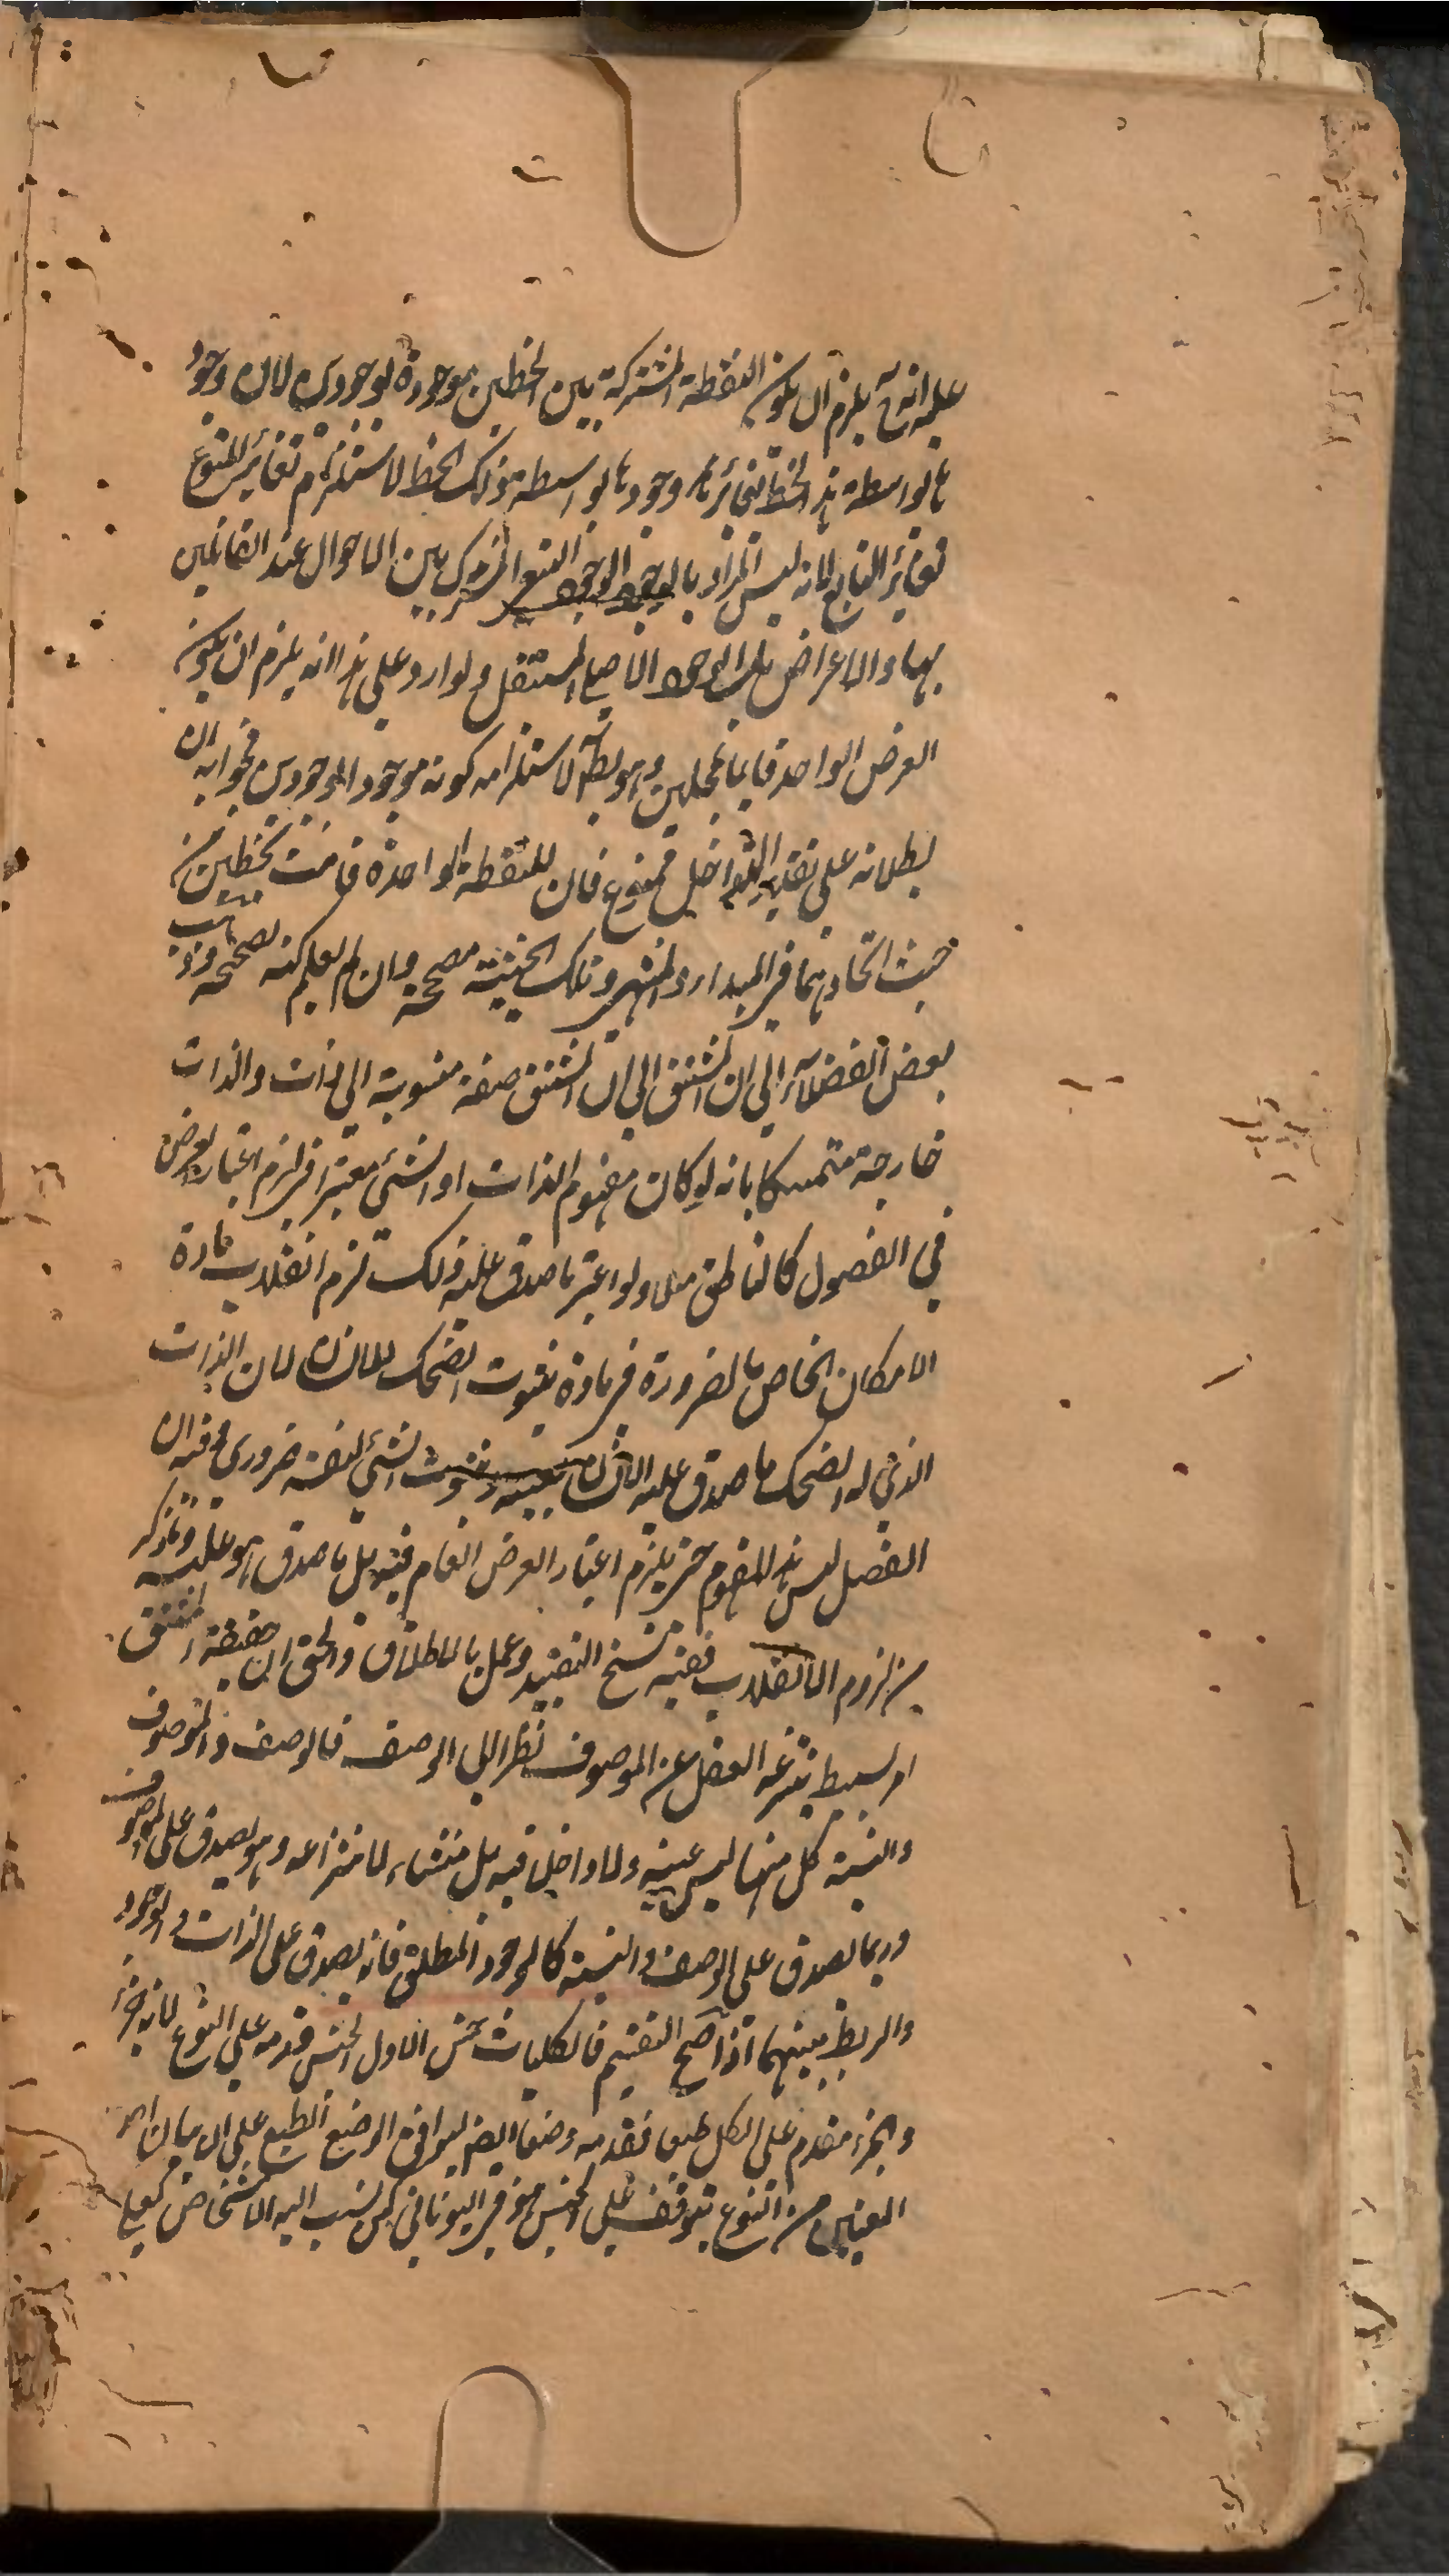 عليه انه ح يلزم ان يكون النقطة المشتركة بين الخطين موجودة لوجودين لان وجود
ها بواسطة هذ الخط تغائر ها وجودها بواسطة ذلك الخط لاستلزام تغائر المتبوع
تغائر التابع لانه ليس المراد بالوجود الوجود التبع المشترك بين الاحوال عند القائلين
بها والاعراض بل الوجود الناصع المستقل ولو ارد على هذا انه يلزم ان يكون
العرض الواحد قايما بمحلين وهو بط لاستلزامه كونه موجودا لوجودين فجوابه ان
بطلانه على تقدير التداخل ممنوع فان للنقطة الواحدة قامت بخطين من
حيث اتحادهما في المبدا والمنتهى وتلك الحيثية مصححة وان لم يعلم كنه تصحيحه وذهب
بعض الفضلاء الى ان المشتق الى ان المشتق صفة منسوبة الى ذات والذات
خارجة متمسكا بانه لو كان مفهوم الذات او الشئ معتبرا فيلزم اعتبار العرض
في الفصول كالناطق مثلا ولو اعتبر ما صدق عليه ذلك لزم انقلاب مادة
الامكان الخاص بالضرورة في مادة ثبوت الضحك للانسان لان الذات
الذي له الضحك ما صدق عليه الانسان بعينه وثبوت الشئ لنفسه ضروري وفيه ان
الفصل ليس هذا المفهوم حتى يلزم اعتبار العرض العام فيه بل ما صدق هو عليه وما ذكر
من لزوم الانقلاب ففيه نسخ التقييد وعمل بالاطلاق والحق ان حقيقة المشتق
امر بسيط ينتزعه العقل عن الموصوف نظرا الى الوصف فالوصف والموصوف
والنسبة كل منها ليس عينه ولا داخل فيه بل منشاء لانتزاعه وهو يصدق على الموصوف
وربما يصدق على الوصف والنسبة كالوجود المطلق فانه يصدق على الذات والوجود
والربط بينهما اذا صح التقسيم فالكليات خمس الاول الجنس قدمه على النوع لانه جزء
والجزء مقدم على الكل طبعا فقدمه وضعا ايضا ليوافق الوضع الطبع على ان بيان احد
المعنيين من النوع يتوقف على الجنس وهو في اليوناني كمن ينسب اليه الاشخاص كعيا